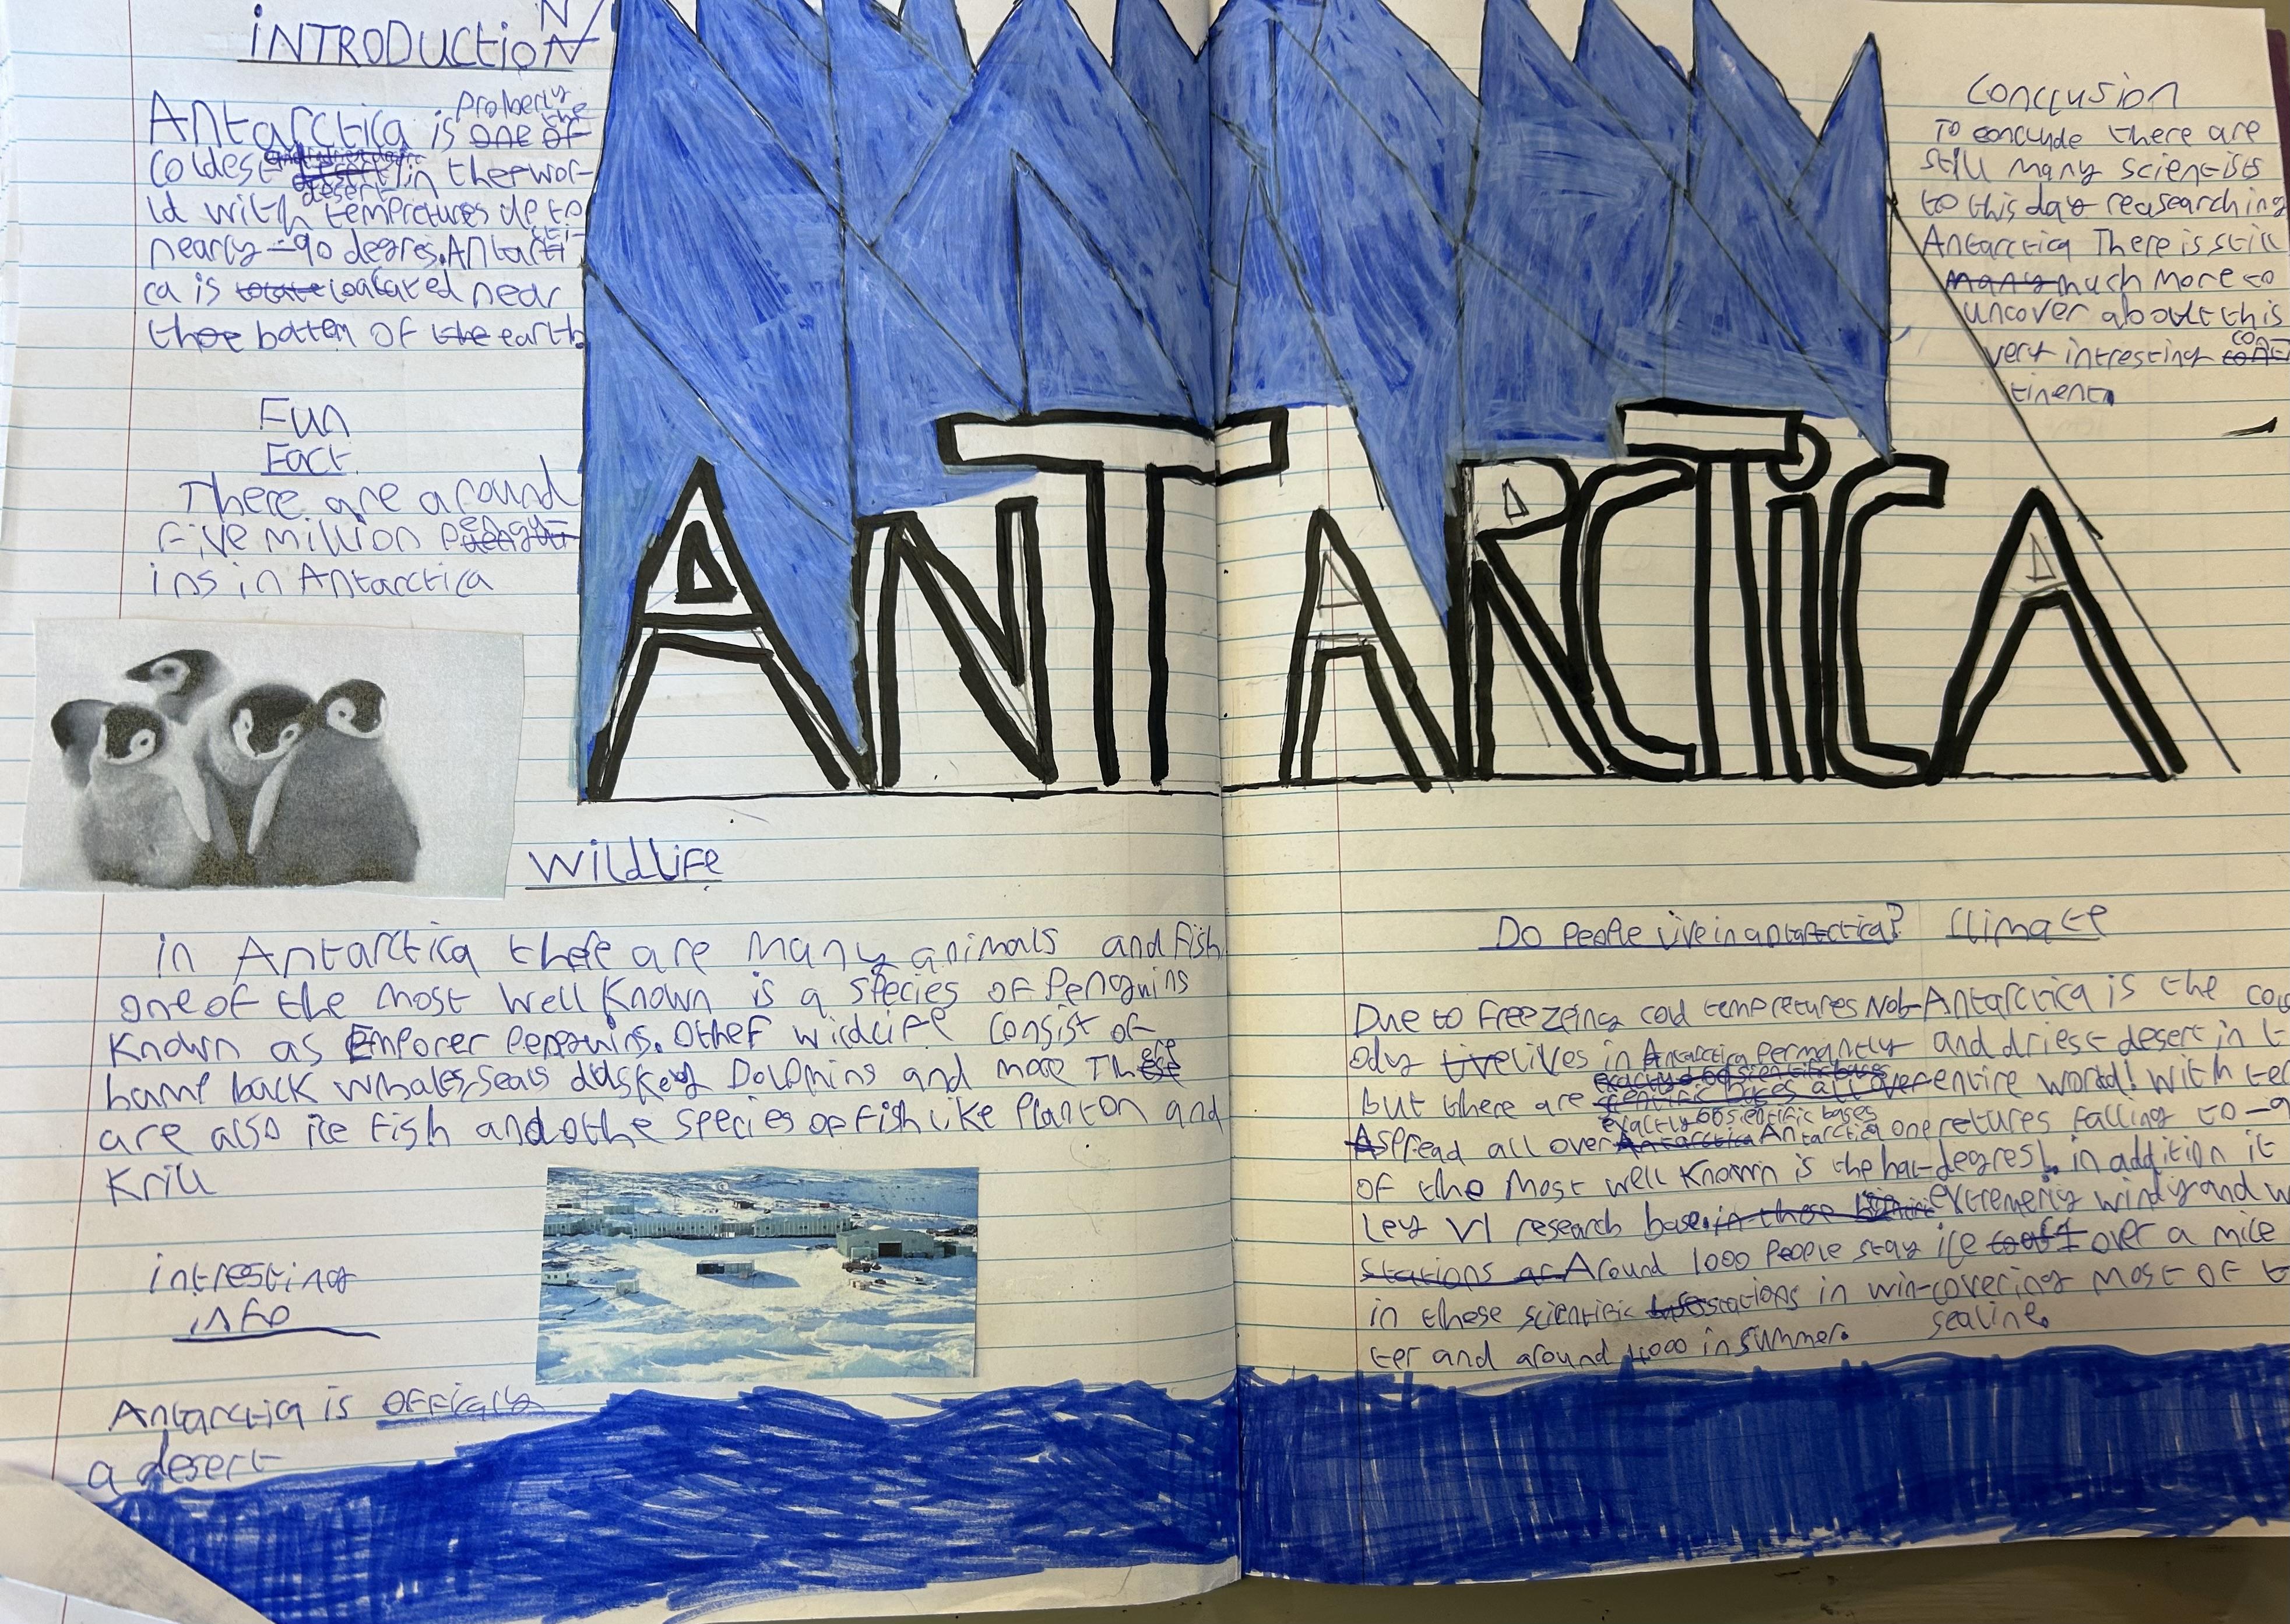 INTRODUCTION
Antarctica is properly the
coldest desert in the wor-
ld with tempretures up to
nearly -90 degres. Antarcti-
ca is loacated near
the bottem of earth.
Fun
Fact.
There are around
five million pengu-
ins in Antarctica
ANTARCTICA
Wildlife
in Antarctica there are many animals and fish
one of the most well known is a species of Penguins
known as Emporer penguins. Other wildlife consist of
hump back whales, seals duskey Dolphins and more There
are also ice fish and othe species of fish like Plankton and
Krill
intresting
info
Antarctica is officaly
a desert
Conclusion
To conclude there are
still many scientists
to this day reasearching
Antarctica There is still
much more to
uncover about this
very intresting con-
tinent.
Do people live in antarctica?
Due to freezeing cold tempretures Nob-
ody lives in Antarctica permantly
but there are exactly 66 sientific bases
spread all over Antarctica one
of the most well known is the hal-
ley VI research base.
Around 1000 people stay
in these scientific stations in win-
ter and around 4000 in summer.
Climate
Antarctica is the
and driest desert in
entire world! With
retures falling to
degres!. in addition it
extremely windy and
ice over a mile
covering most of
sealine.